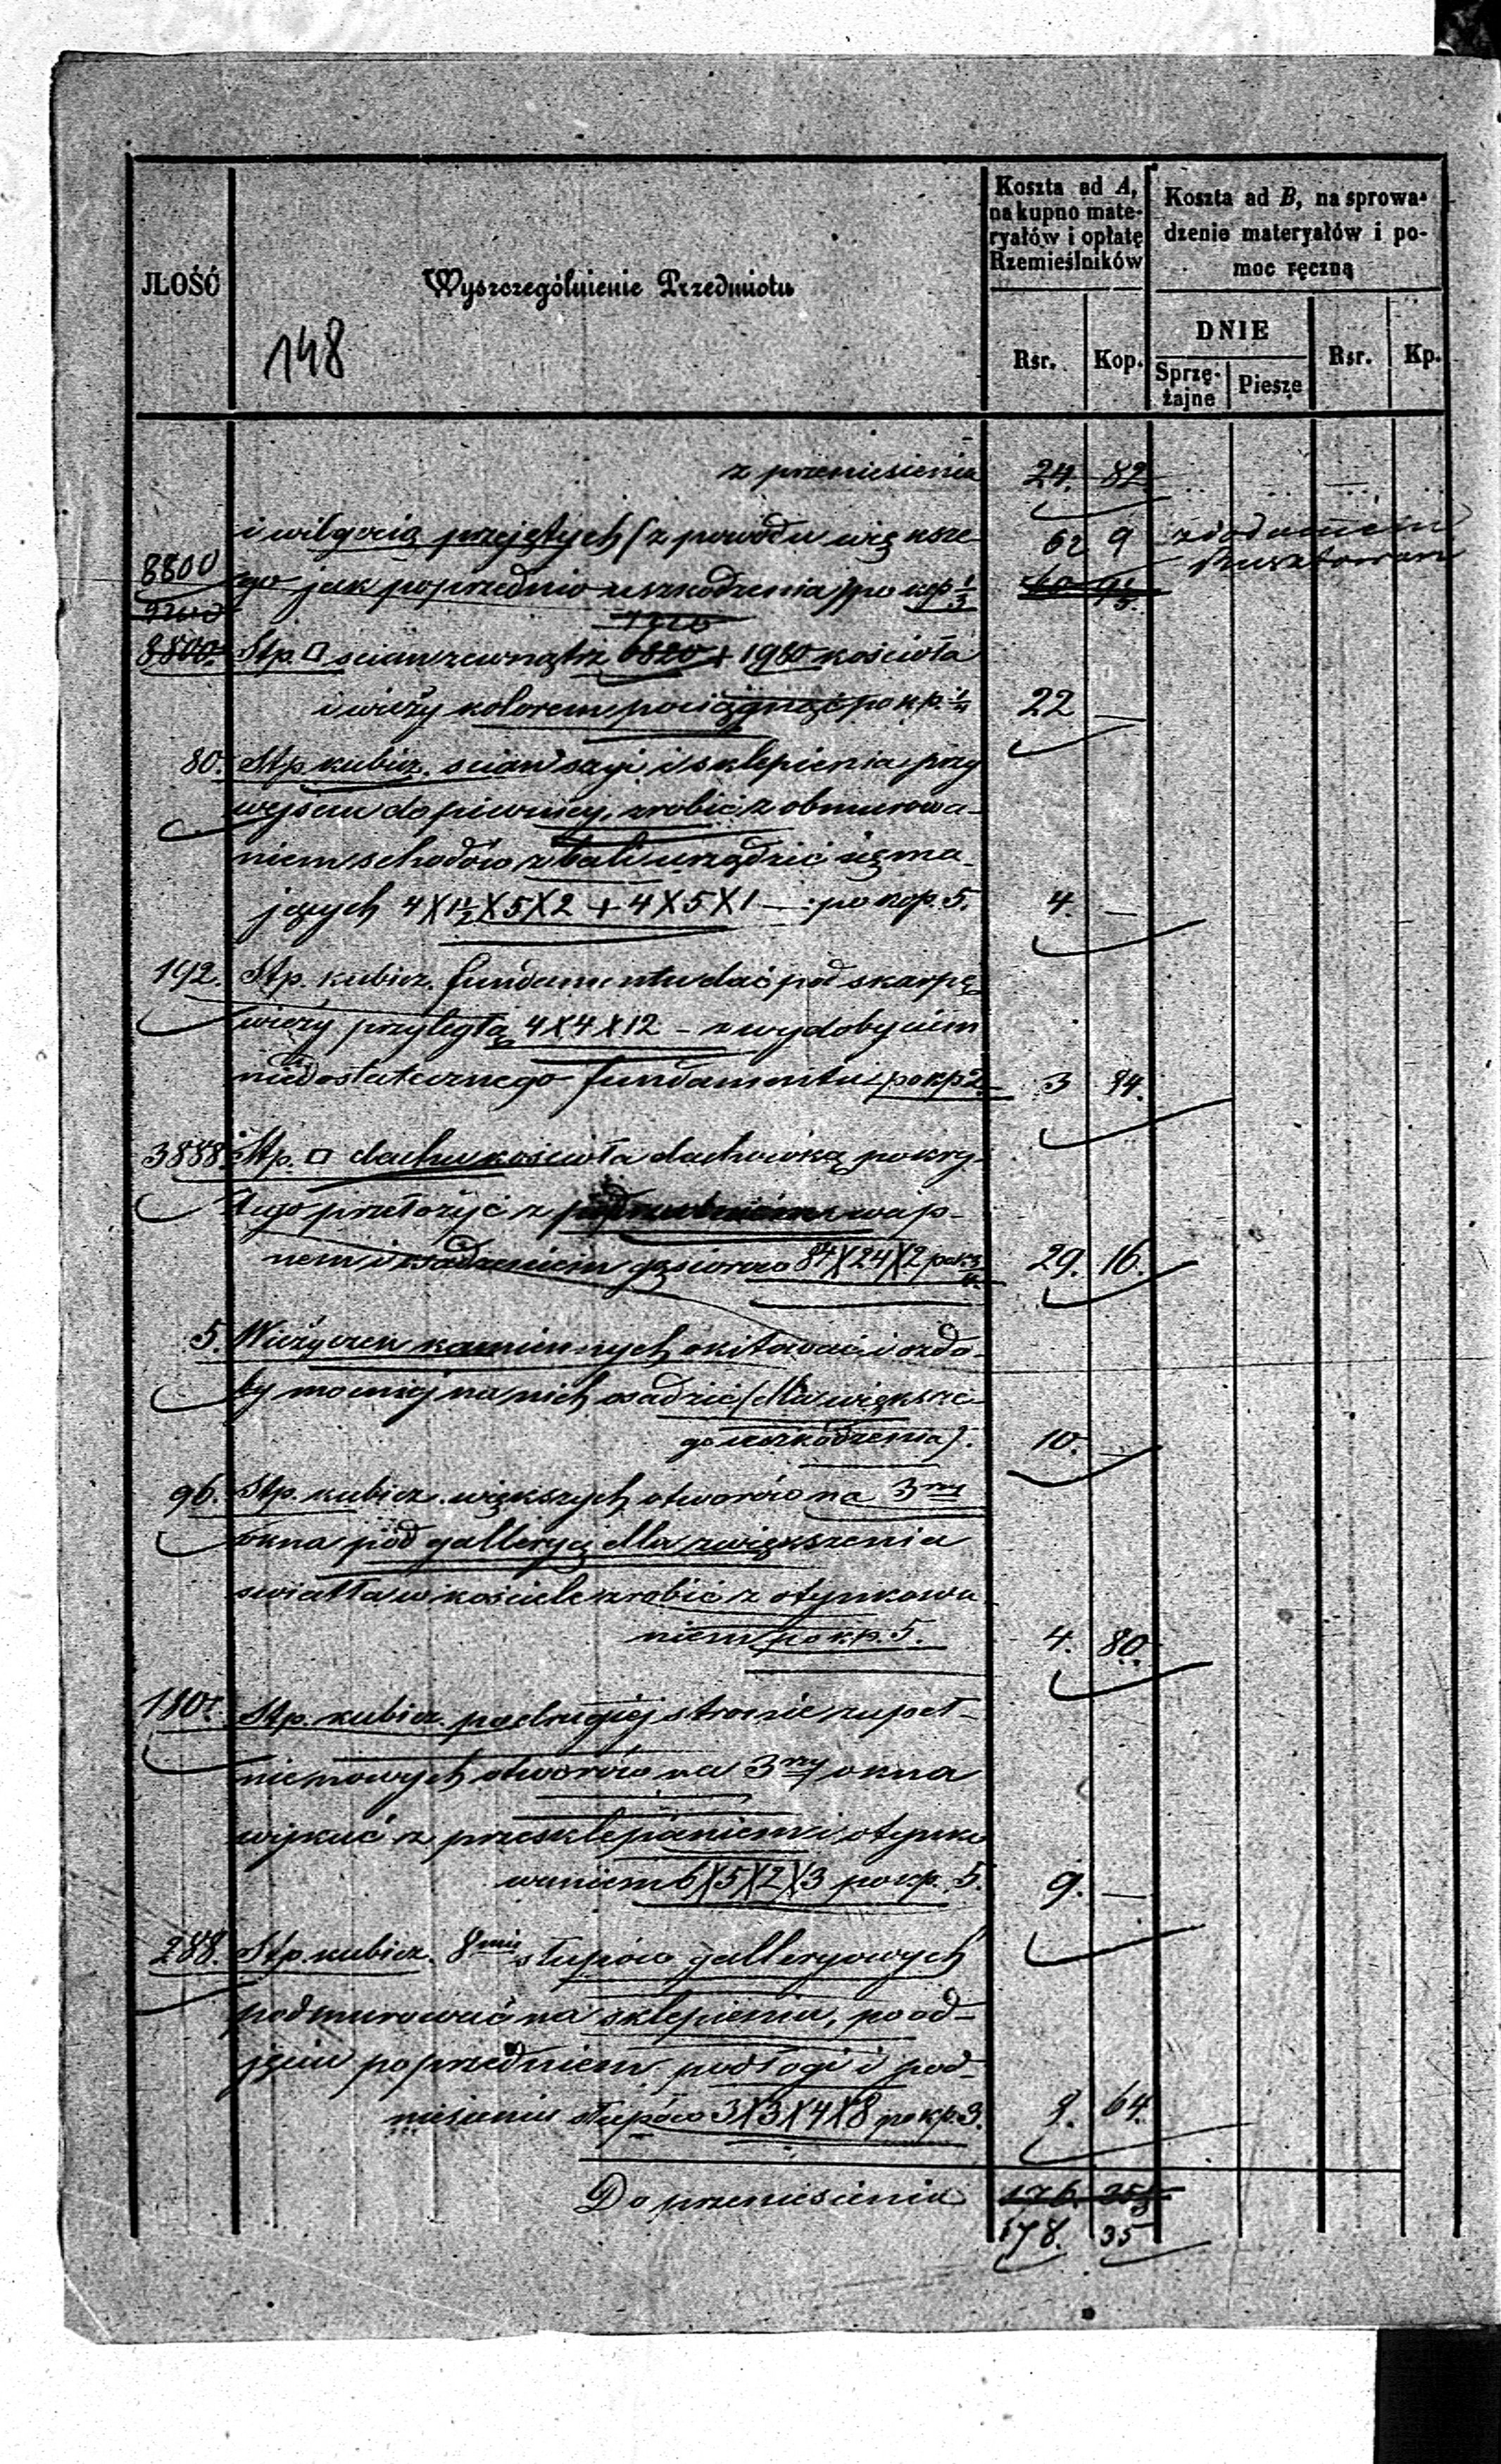 JŁOŚĆ
Wyszczególnienie Przedmiotu
Koszta ad A,
na kupno mate-
ryałów i opłatę
Rzemieślników
Koszta ad B, na sprowa-
dzenie materyałów i po-
moc ręczną
DNIE
Rsr.
Kop.
Sprzę-
żajne
Piesze
Rsr.
Kp.
148
z przeniesienia 24. 82
i wilgocią przejętych (z powodu większe- 62 9 z dodaniem
8800 go jak poprzednio uszkodzenia) po kop 1/3
8800. Stp. □ scian zewnątrz 6820 + 1980 kościoła
i wieży kolorem pociągnąć po kp. 1/4 22 —
80. Stp. kubicz. scian szyi i sklepienia przy
wejsciu do piwnicy, zrobić z obmurowa-
niem schodów z bali urządzić się ma-
jących 4X1½X5X2 + 4X5X1 — po kop. 5. 4. —
192. Stp. kubicz. fundamentu dać pod skarpę
wieży przyległą 4X4X12 – z wydobyciem
niedostatecznego fundamentu po kp 2. 3 84.
3888. Stp. □ dachu kościoła dachówką pokry-
tego przełożyć z wap-
nem i osadzeniem gąsiorów 84X24X2 po k. 3/4 29. 16.
5. Wieżyczek kamiennych okitować i ozdo-
by mocniej na nich osadzić (dla większe-
go uszkodzenia). 10. —
96. Stp. kubicz. większych otworów na 3rzy
okna pod galleryą dla zwiększenia
swiatła w kościele zrobić z otynkowa
niem po k.p. 5. 4. 80.
180. Stp. kubicz. po drugiej stronie zupeł-
nie nowych otworów na 3rzy okna
wykuć z przesklepieniem i otynko
waniem 6X5X2X3 po kp. 5. 9. —
288. Stp. kubicz. 8miu słupów gallerywych
podmurować na sklepieniu, po od-
jęciu poprzedniem podłogi i pod-
niesieniu słupów 3X3X4X8 po kp. 3. 8. 64.
Do przeniesienia
178. 35